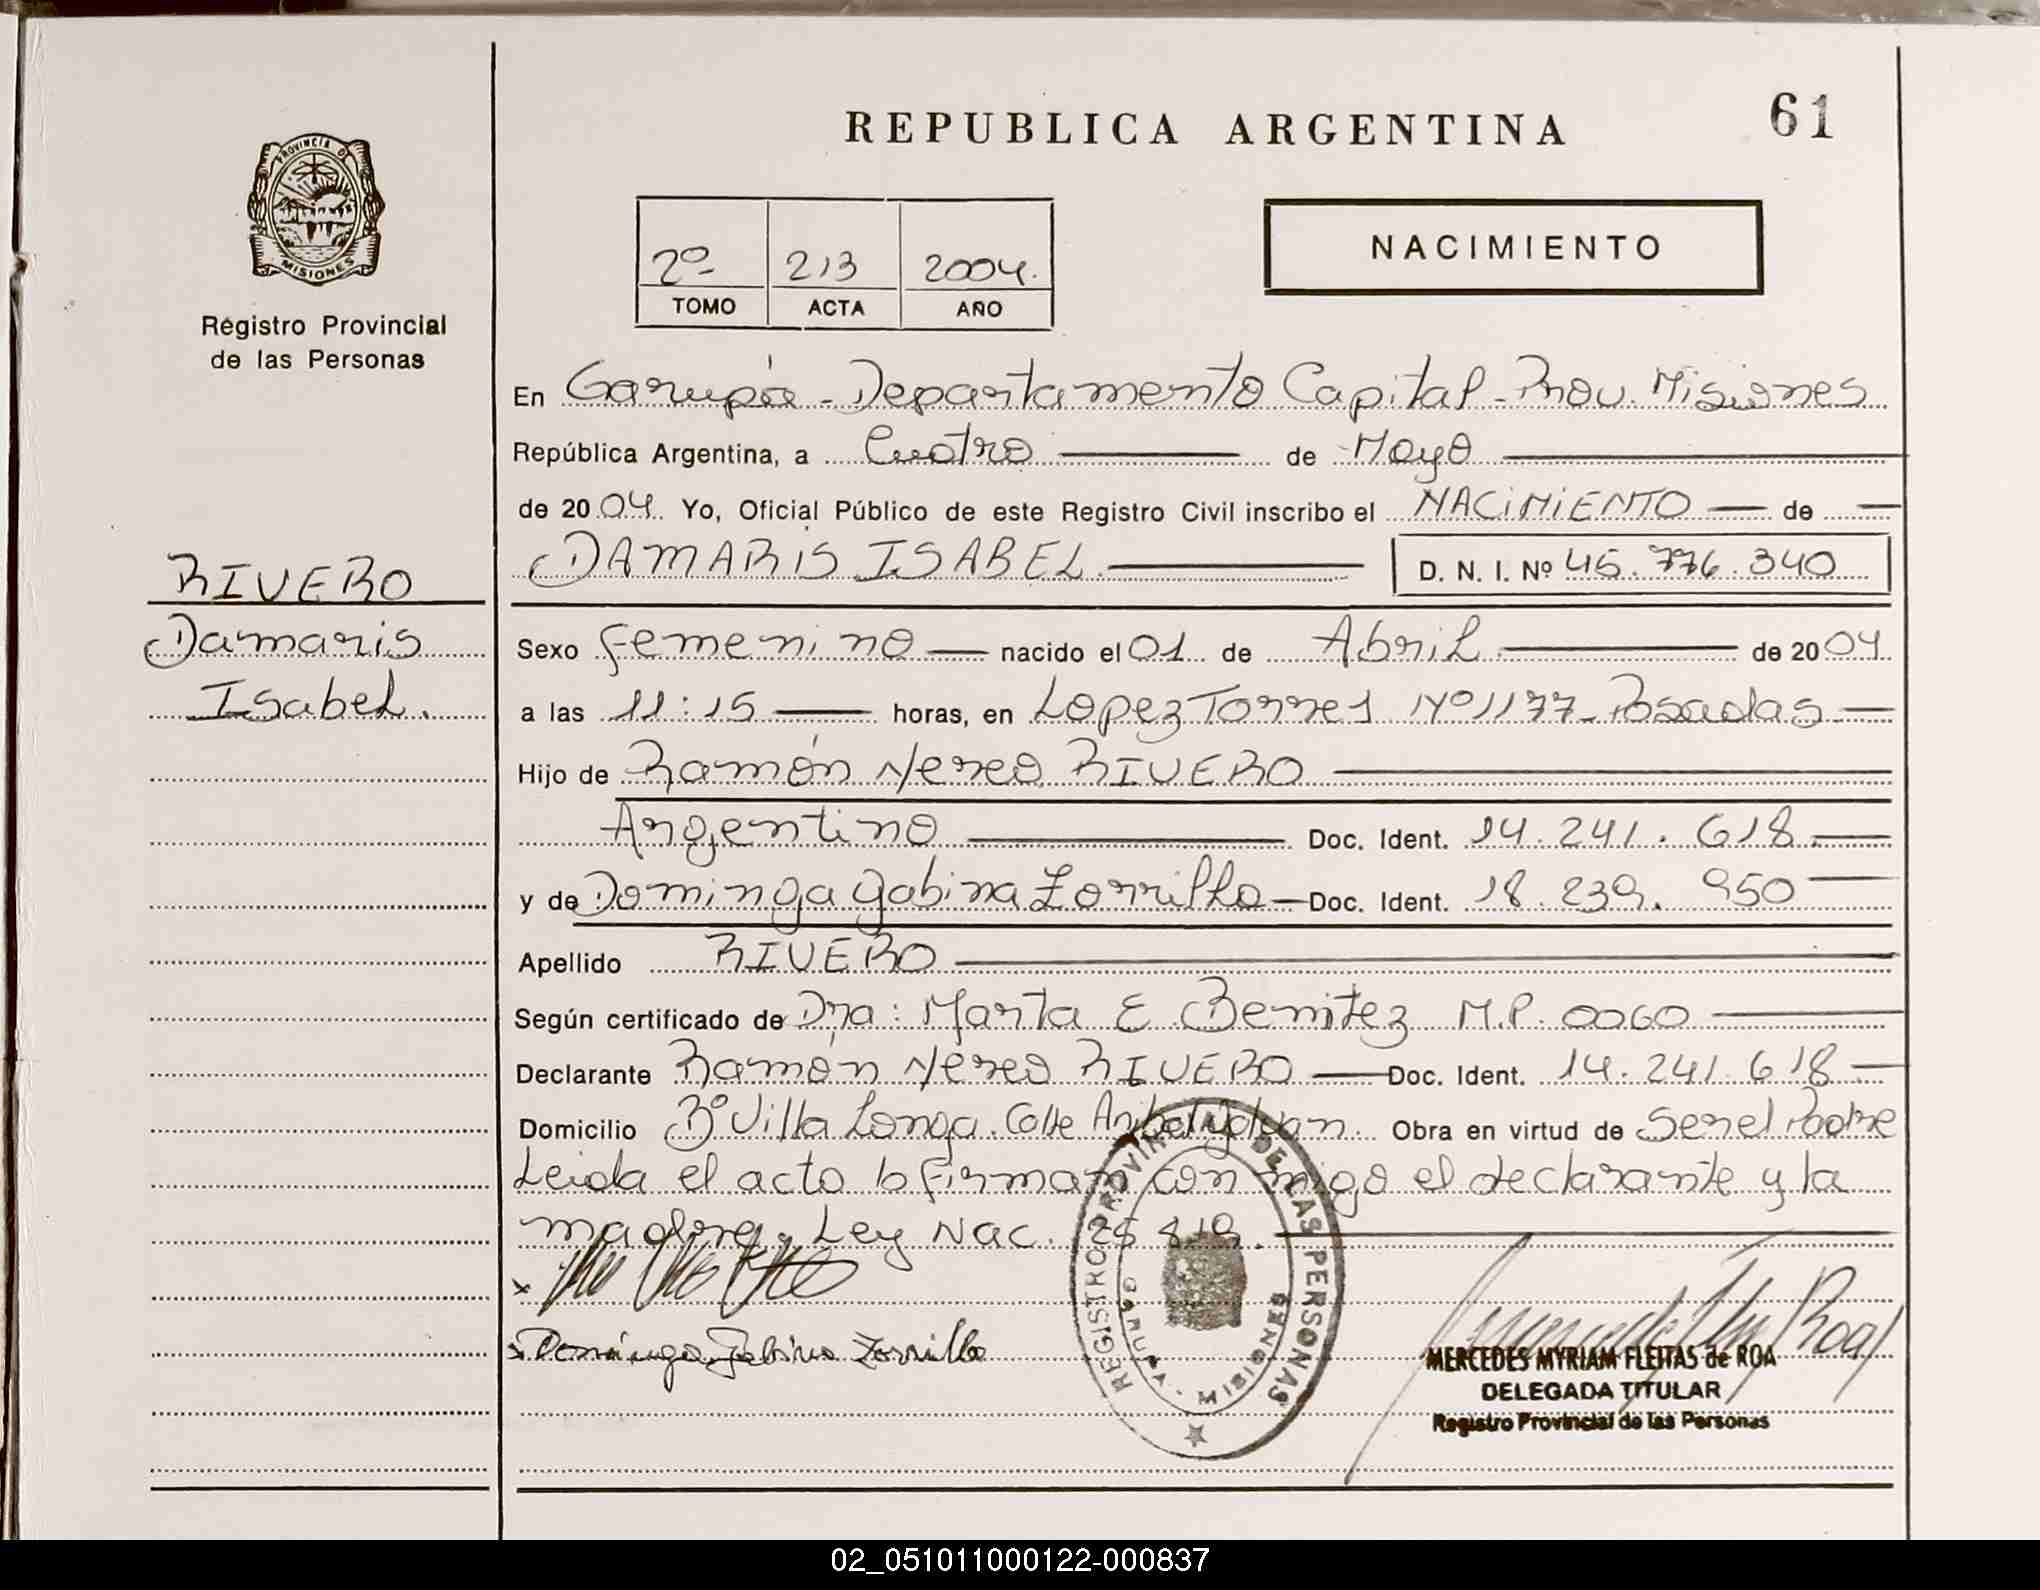 REPUBLICA ARGENTINA
61
PROVINCIA DE
MISIONES
Registro Provincial
de las Personas
2º 213 2004.
TOMO ACTA AÑO
NACIMIENTO
En Garupá - Departamento Capital - Prov. Misiones
República Argentina, a Cuatro de Mayo
de 2004. Yo, Oficial Público de este Registro Civil inscribo el NACIMIENTO de
DAMARIS ISABEL. D. N. I. Nº 45.776.340
RIVERO
Damaris
Isabel.
Sexo Femenino nacido el 01 de Abril de 2004
a las 11:15 horas, en Lopez Torres Nº 1177 - Posadas
Hijo de Ramón Nereo RIVERO
Argentino Doc. Ident. 14.241.618
y de Dominga Gabina Zorrilla Doc. Ident. 18.239.950
Apellido RIVERO
Según certificado de Dra: Marta E Benitez M.P. 0060
Declarante Ramón Nereo RIVERO Doc. Ident. 14.241.618
Domicilio Bº Villa Longa. Calle Obra en virtud de Ser el Padre
Leida el acta la firman con migo el declarante y la
madre. Ley Nac.
Dominga Gabina Zorrilla
REGISTRO PROVINCIAL DE LAS PERSONAS
MISIONES
MERCEDES MYRIAM FLEITAS de ROA
DELEGADA TITULAR
Registro Provincial de las Personas
02_051011000122-000837